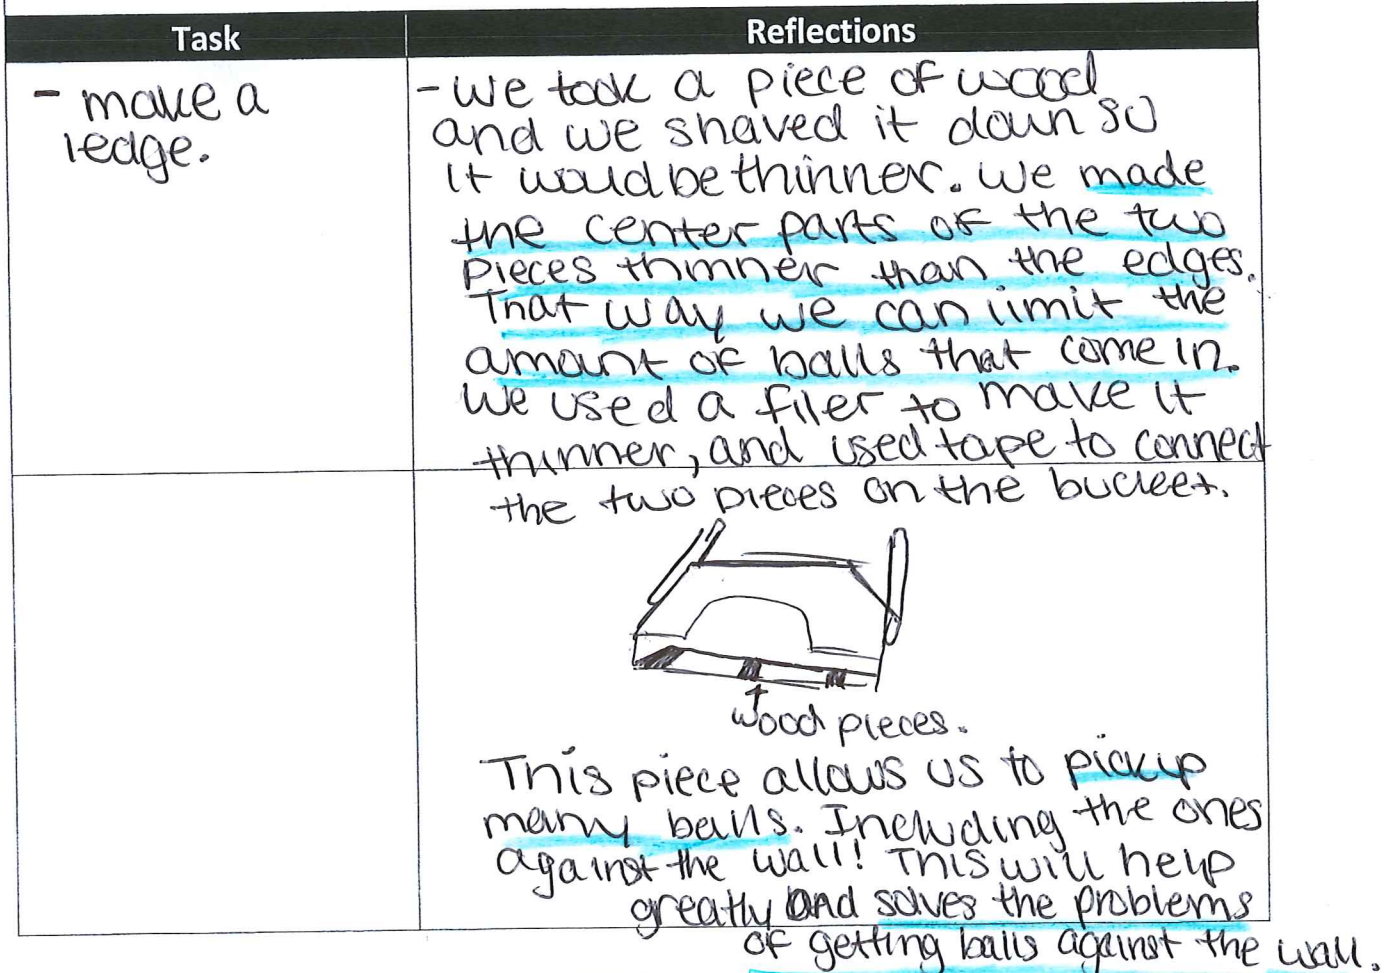 Task
Reflections
- make a
ledge.
- We took a piece of wood
and we shaved it down so
it would be thinner. We made
the center parts of the two
pieces thinner than the edges.
That way we can limit the
amount of balls that come in.
We used a filer to make it
thinner, and used tape to connect
the two pieces on the bucket.
wood pieces.
This piece allows us to pickup
many balls. Including the ones
against the wall! This will help
greatly and solves the problems
of getting balls against the wall.